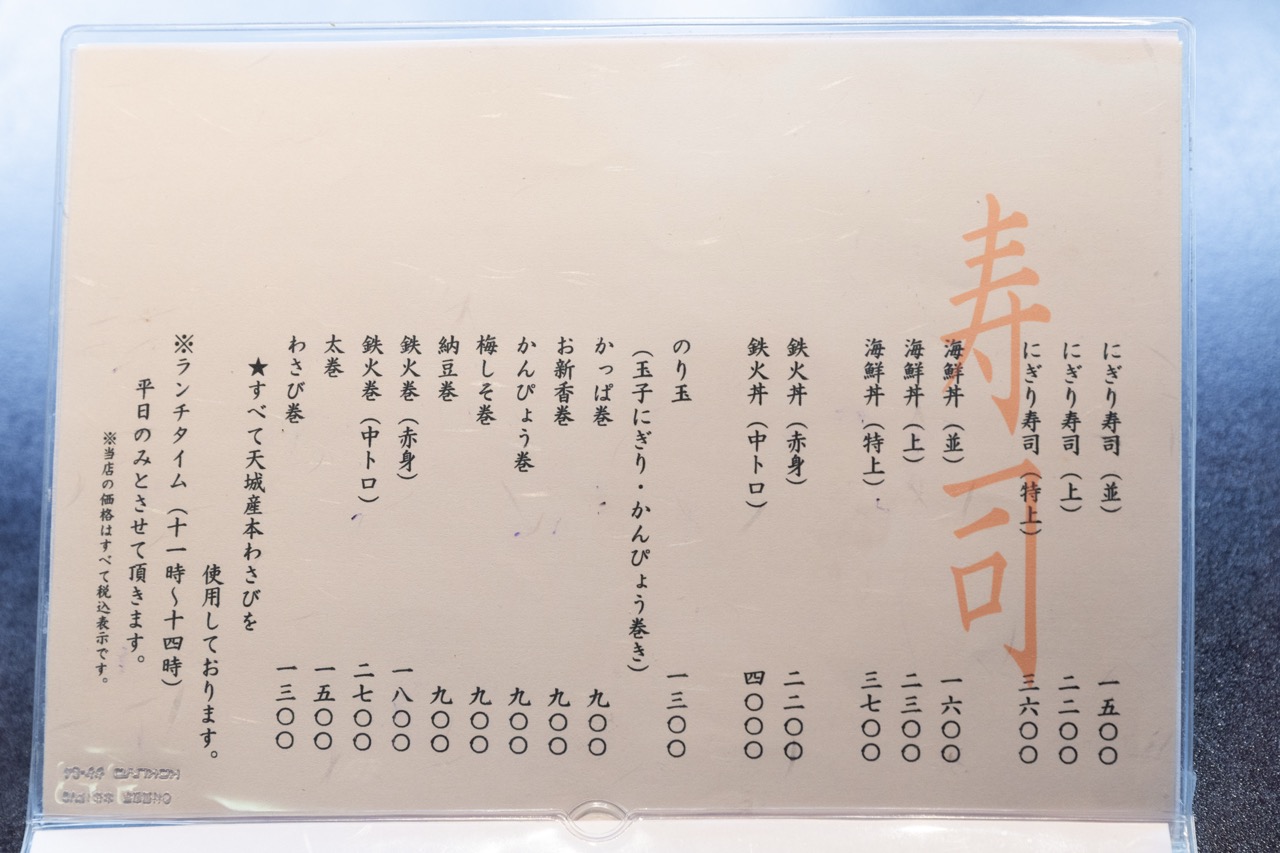 寿司
にぎり寿司（並） 一五〇〇
にぎり寿司（上） 二二〇〇
にぎり寿司（特上） 三六〇〇
海鮮丼（並） 一六〇〇
海鮮丼（上） 二三〇〇
海鮮丼（特上） 三七〇〇
鉄火丼（赤身） 二二〇〇
鉄火丼（中トロ） 四〇〇〇
のり玉 一三〇〇
（玉子にぎり・かんぴょう巻き）
かっぱ巻 九〇〇
お新香巻 九〇〇
かんぴょう巻 九〇〇
梅しそ巻 九〇〇
納豆巻 九〇〇
鉄火巻（赤身） 一八〇〇
鉄火巻（中トロ） 二七〇〇
太巻 一五〇〇
わさび巻 一三〇〇
★すべて天城産本わさびを
使用しております。
※ランチタイム（十一時～十四時）
平日のみとさせて頂きます。
※当店の価格はすべて税込表示です。